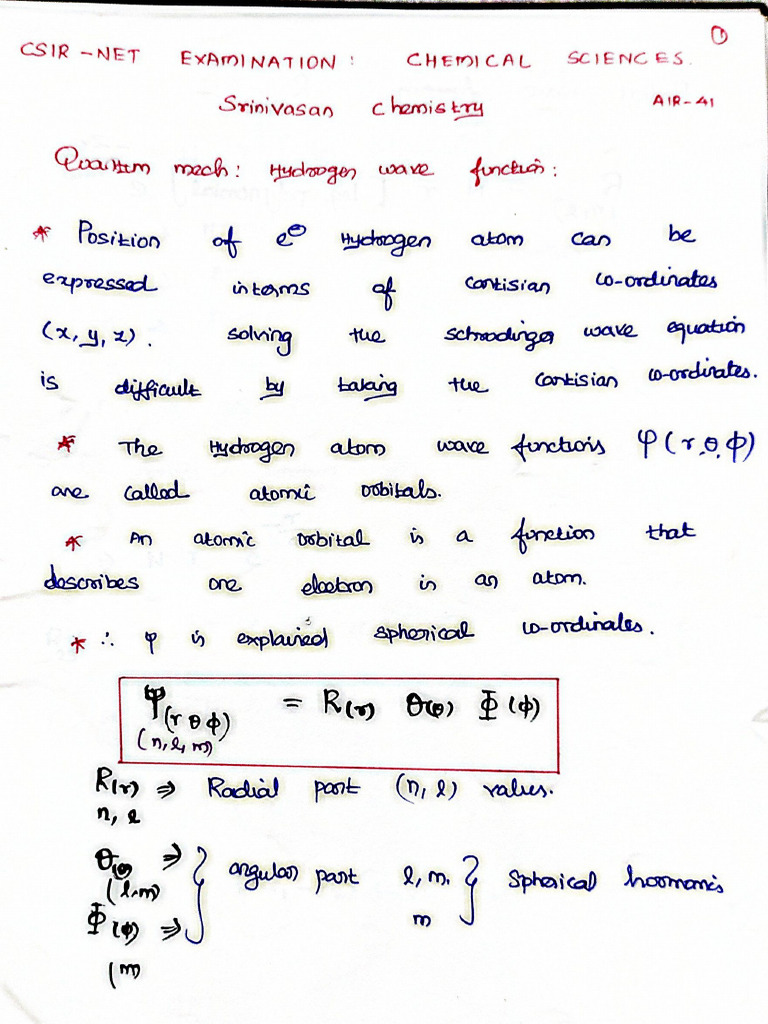 ①
CSIR-NET EXAMINATION: CHEMICAL SCIENCES.
Srinivasan Chemistry AIR-41
Quantum mech: Hydrogen wave function:
* Position of e⊖ Hydrogen atom can be
expressed interms of cartisian co-ordinates
(x, y, z). solving the schrodinger wave equation
is difficult by taking the cartisian co-ordinates.
* The Hydrogen atom wave functions φ(r,θ,ϕ)
are called atomic orbitals.
* An atomic orbital is a function that
describes one electron in an atom.
* ∴ φ is explained spherical co-ordinates.
φ(r θ ϕ) = R(r) θ(θ) Φ(ϕ)
(n, l, m)
R(r) ⇒ Radial part (n, l) values.
n, l
θ(θ) ⇒ } angular part l, m. } Spherical hormonis
(l,m) m
Φ(ϕ) ⇒
(m)